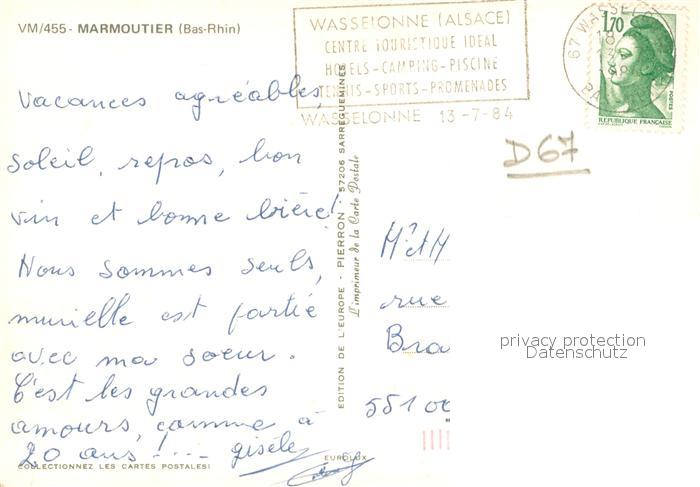 VM/455 - MARMOUTIER (Bas-Rhin)
WASSELONNE (ALSACE)
CENTRE TOURISTIQUE IDEAL
HOTELS-CAMPING-PISCINE
TENNIS-SPORTS-PROMENADES
WASSELONNE 13-7-84
67 WASSEL
1,70
POSTES
REPUBLIQUE FRANÇAISE
D67
Vacances agréables,
soleil, repos, bon
vin et bonne bière!
Nous sommes seuls,
murielle est partie
avec ma soeur.
C'est les grandes
amours, comme à
20 ans !.... gisèle
EDITION DE L'EUROPE - PIERRON - 57206 SARREGUEMINES
L'imprimeur de la Carte Postale
M et M
rue
Bra
551 00
privacy protection
Datenschutz
COLLECTIONNEZ LES CARTES POSTALES!
EUROLUX